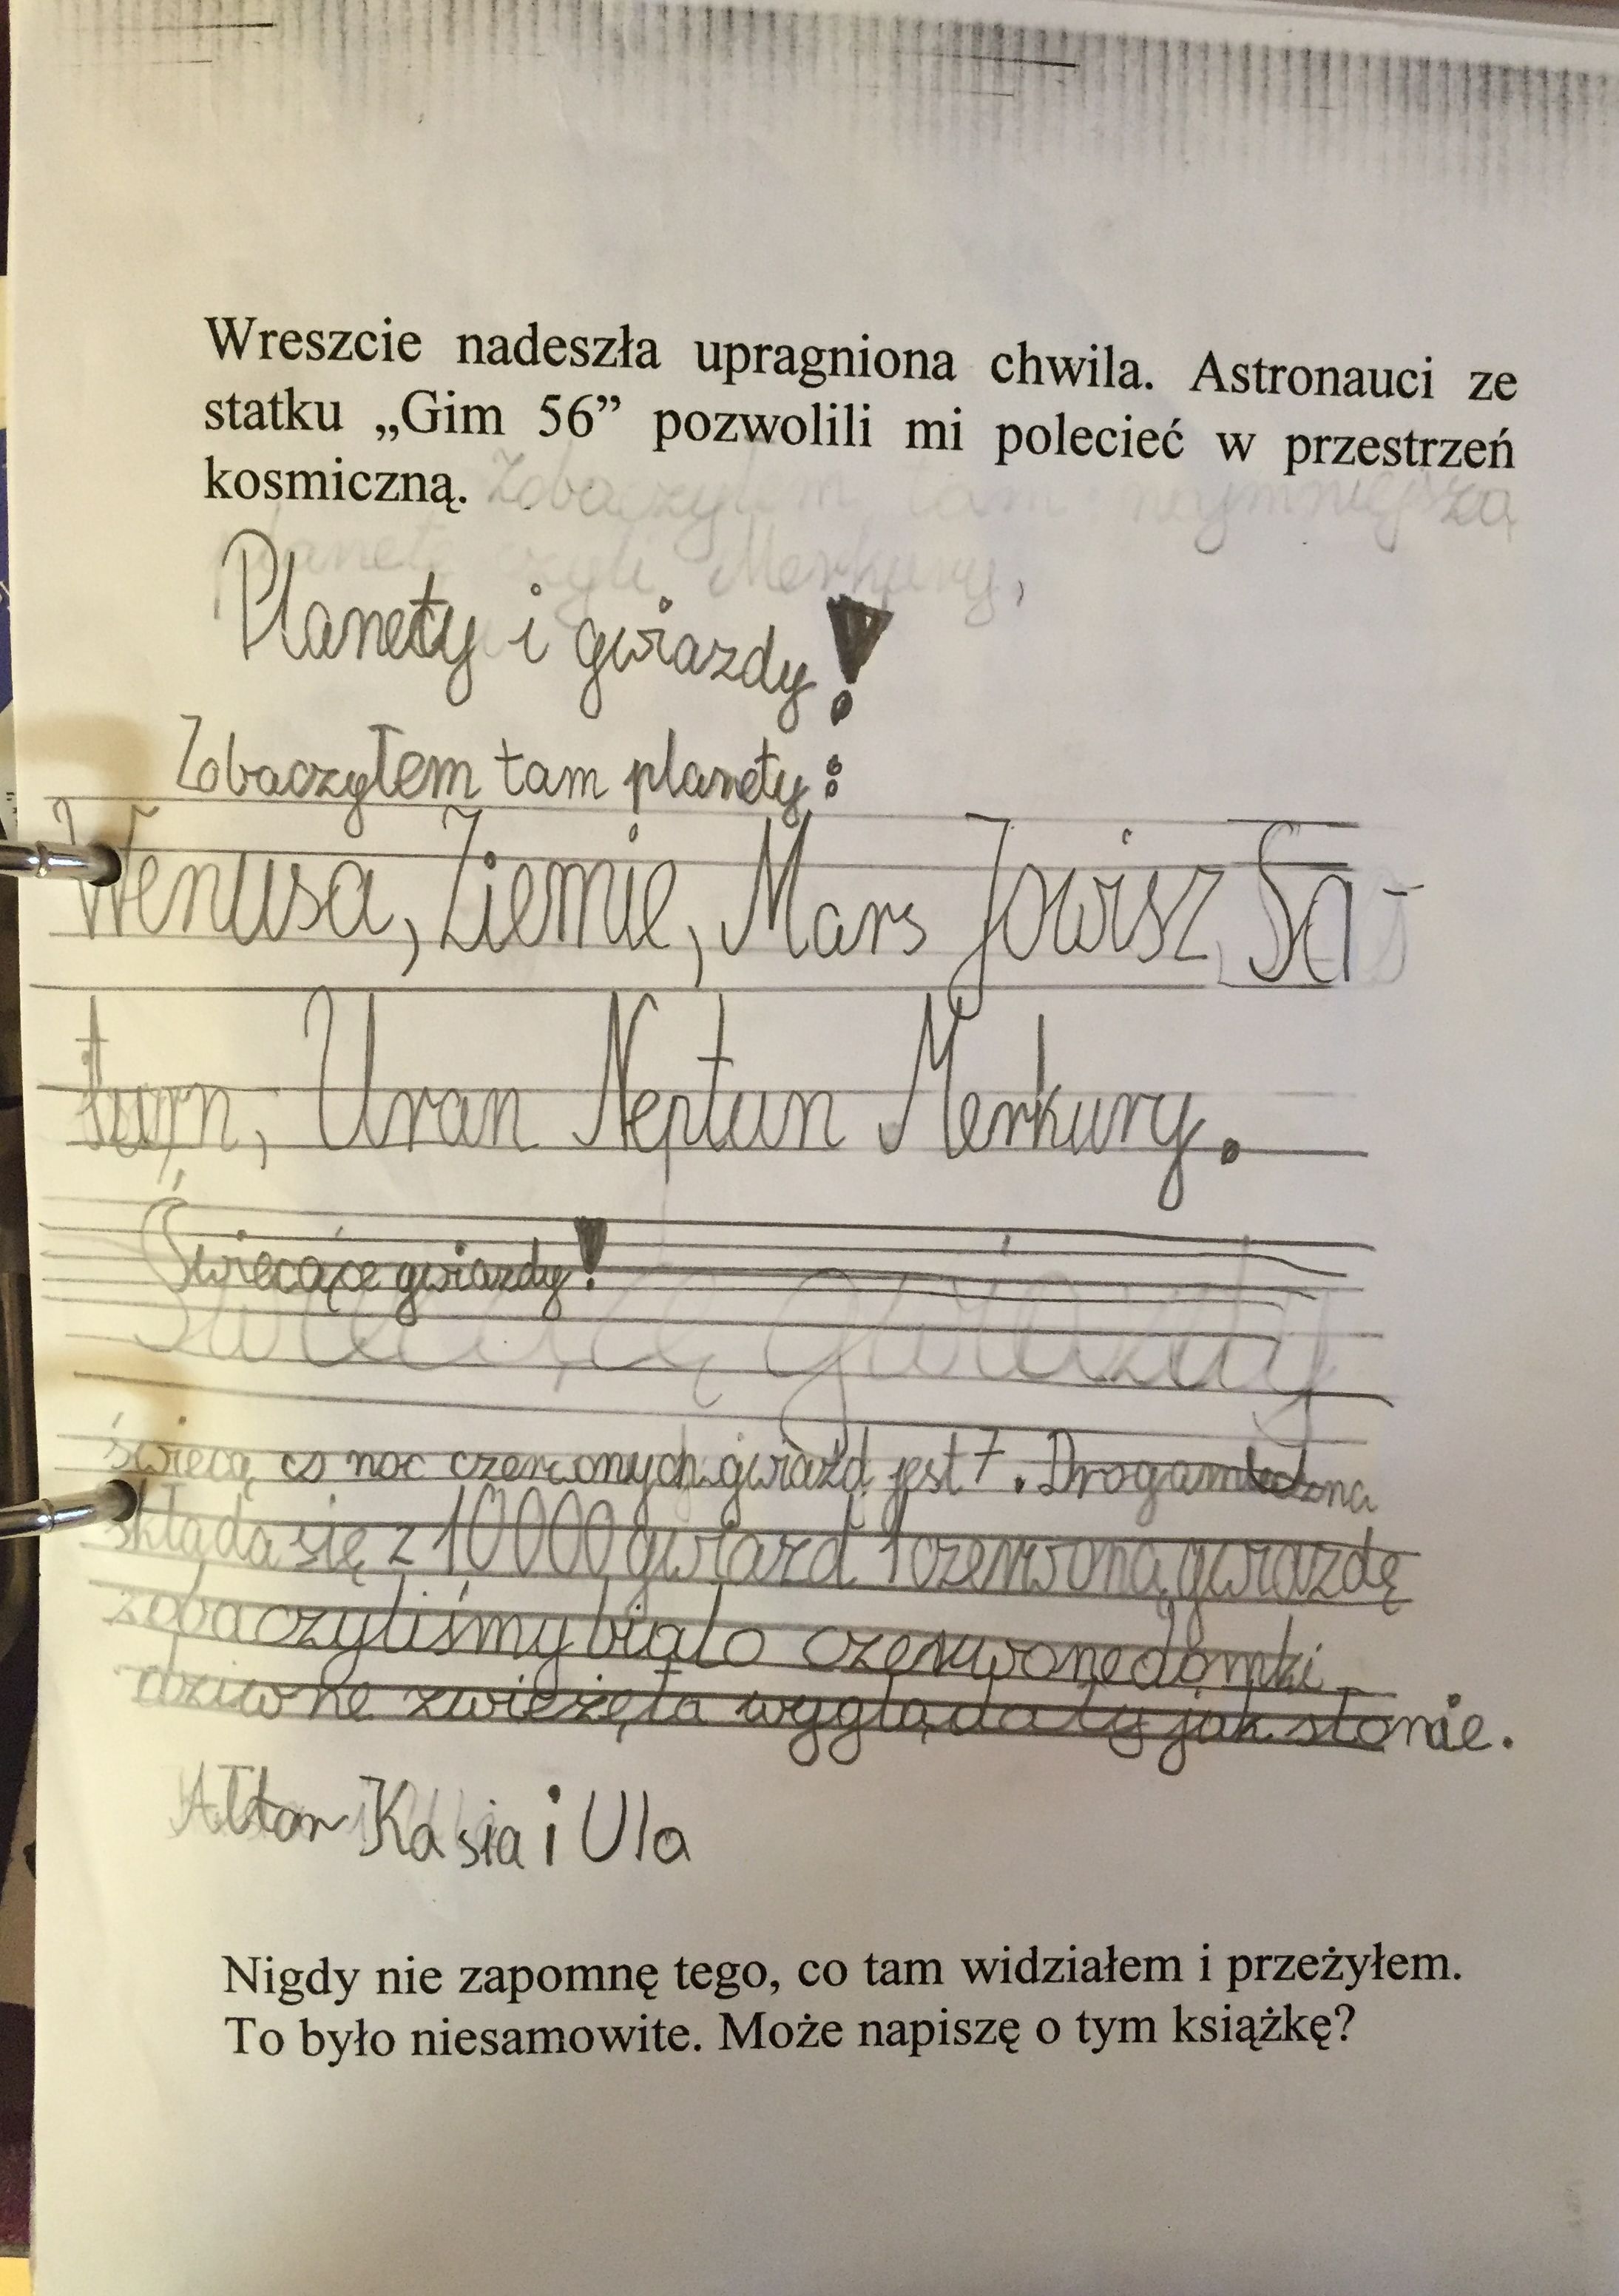 Wreszcie nadeszła upragniona chwila. Astronauci ze
statku „Gim 56” pozwolili mi polecieć w przestrzeń
kosmiczną. Zobaczyłem tam najmniejszą
planetę czyli Merkury,
Planety i gwiazdy!
Zobaczyłem tam planety:
Wenusa, Ziemie, Mars Jowisz, Sa-
turn, Uran Neptun Merkury.
Świecące gwiazdy!
Świecącę gwiazdy
świecą co noc czerwonych gwiazd jest 7. Droga mleczna
składa się z 10000 gwiazd 1 czerwoną gwiazdę
zobaczyliśmy biało czerwone domki
dziwne zwieżęta wyglądały jak słonie.
Kasia i Ula
Nigdy nie zapomnę tego, co tam widziałem i przeżyłem.
To było niesamowite. Może napiszę o tym książkę?